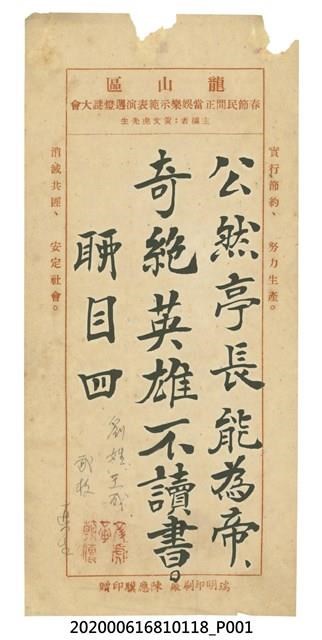 龍山區
春節民間正當娛樂示範表演週燈謎大會
主編者：黃文虎先生
實行節約、努力生產。
公然亭長能為帝、
奇絶英雄不讀書。
聊目四
消滅共匪、安定社會。
瑞明印刷廠 陳應騏印贈
202000616810118_P001